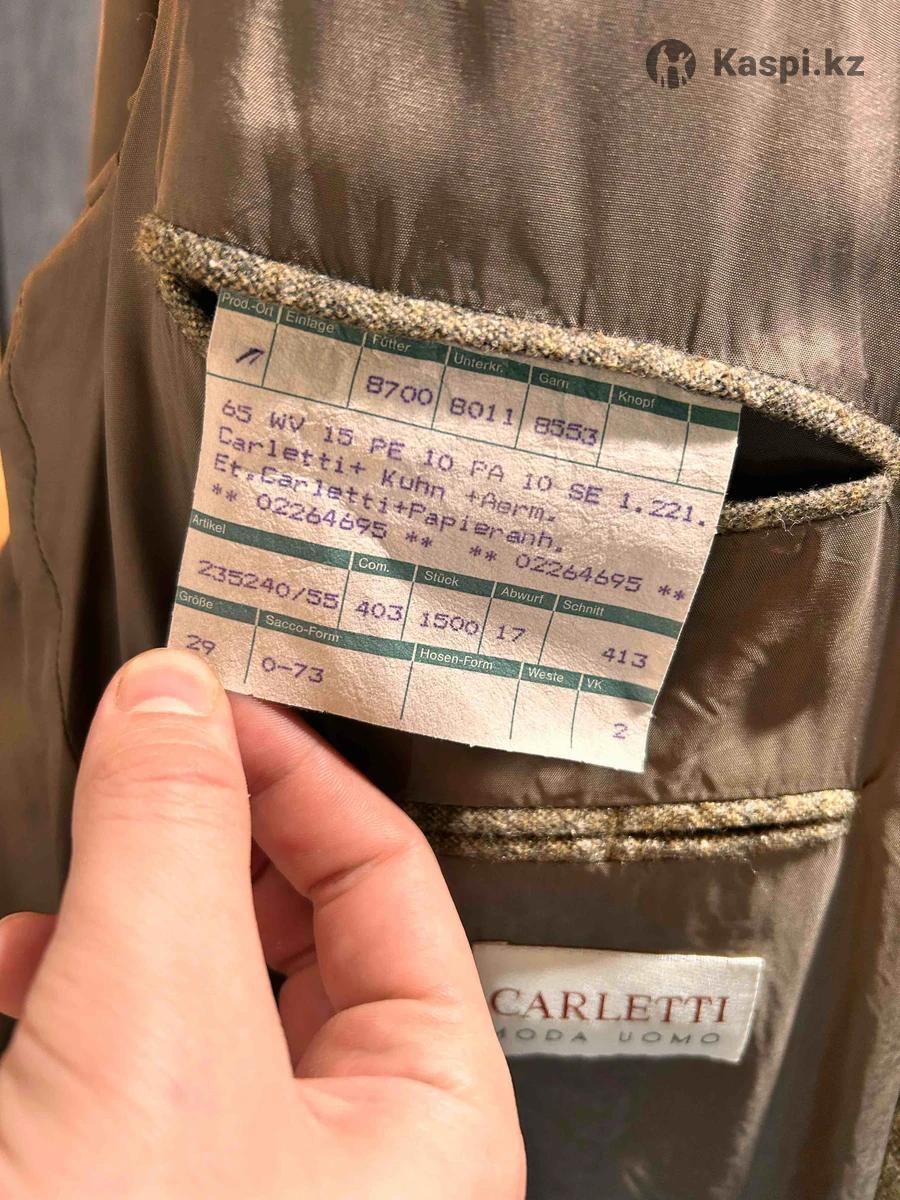 Kaspi.kz
Prod.-Ort Einlage Futter Unterkr. Garn Knopf
8700 8011 8553
65 WV 15 PE 10 PA 10 SE 1.221.
Carletti+ Kuhn +Aerm.
Et.Carletti+Papieranh.
** 02264695 ** ** 02264695 **
Artikel Com. Stück Abwurf Schnitt
235240/55 403 1500 17 413
Größe Sacco-Form Hosen-Form Weste VK
29 0-73 2
CARLETTI
MODA UOMO